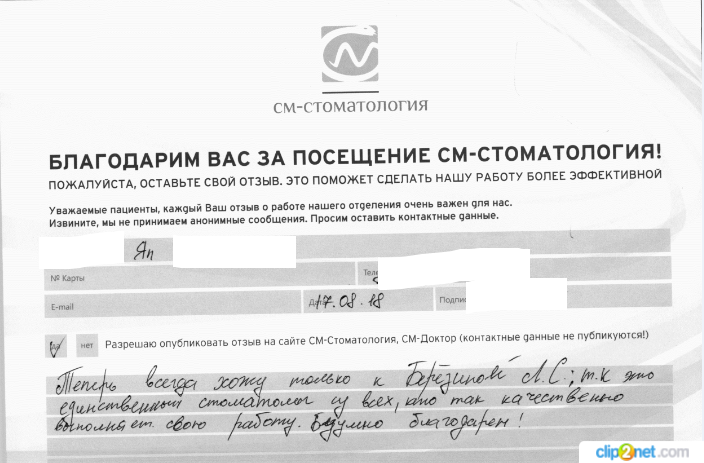 СМ-СТОМАТОЛОГИЯ
БЛАГОДАРИМ ВАС ЗА ПОСЕЩЕНИЕ СМ-СТОМАТОЛОГИЯ!
ПОЖАЛУЙСТА, ОСТАВЬТЕ СВОЙ ОТЗЫВ. ЭТО ПОМОЖЕТ СДЕЛАТЬ НАШУ РАБОТУ БОЛЕЕ ЭФФЕКТИВНОЙ
Уважаемые пациенты, каждый Ваш отзыв о работе нашего отделения очень важен для нас.
Извините, мы не принимаем анонимные сообщения. Просим оставить контактные данные.
Яп
№ Карты
E-mail 17.08.18
да нет Разрешаю опубликовать отзыв на сайте СМ-Стоматология, СМ-Доктор (контактные данные не публикуются!)
Теперь всегда хожу только к Берёзиной Л.С.; т.к это
единственный стоматолог из всех, кто так качественно
выполняет свою работу. Безумно благодарен!
clip2net.com